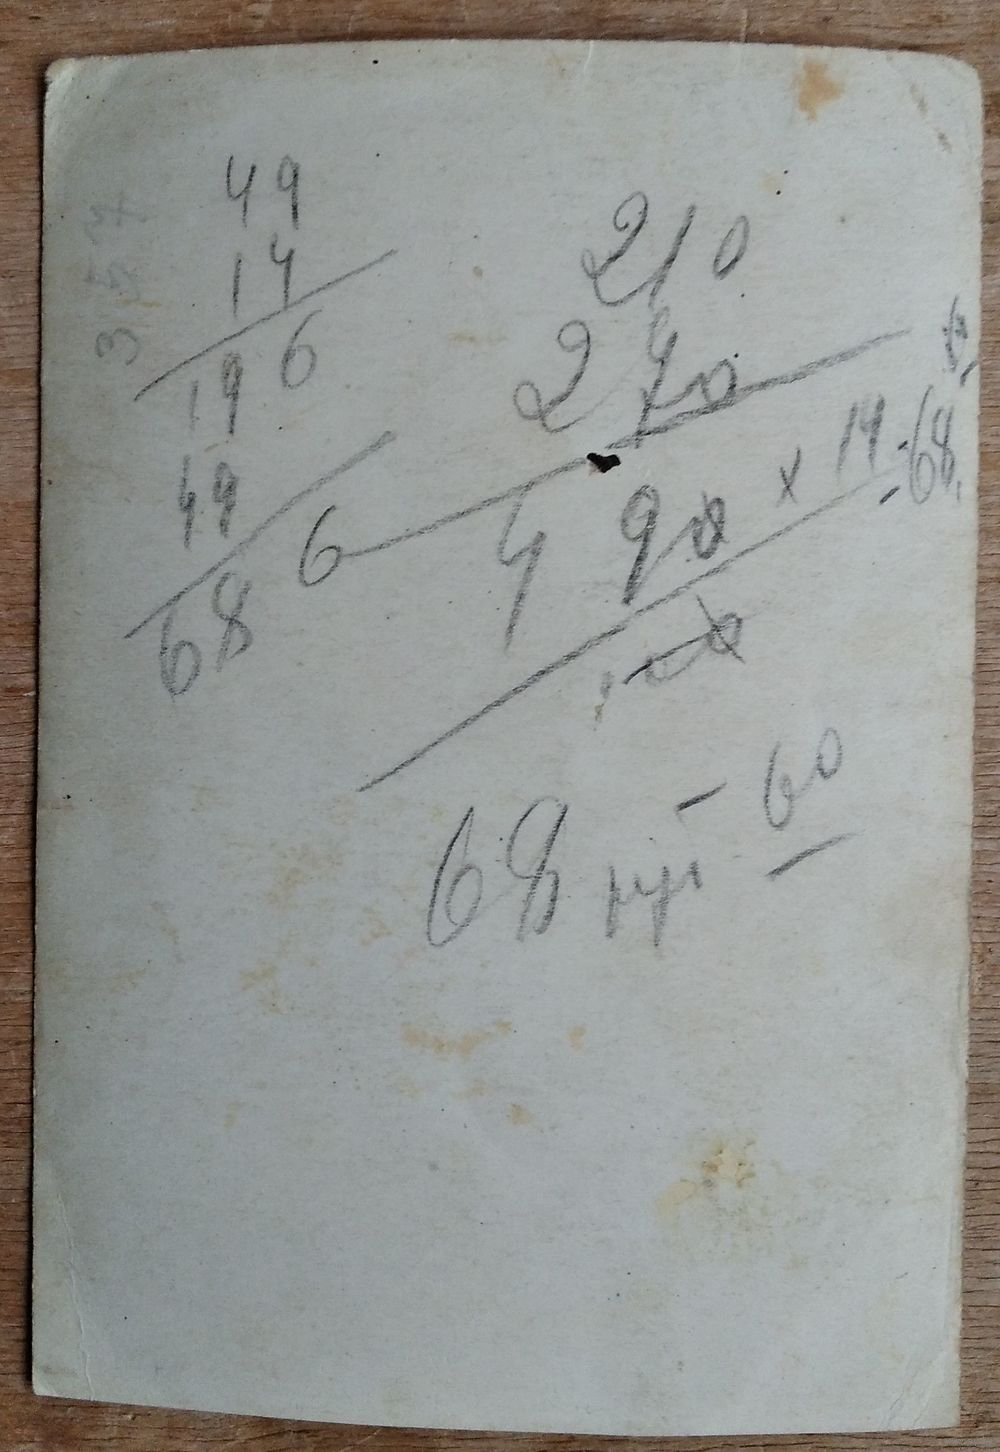 357
49
14
196
49
686
210
280
490 x 14 - 68,6
100
68 руб - 60